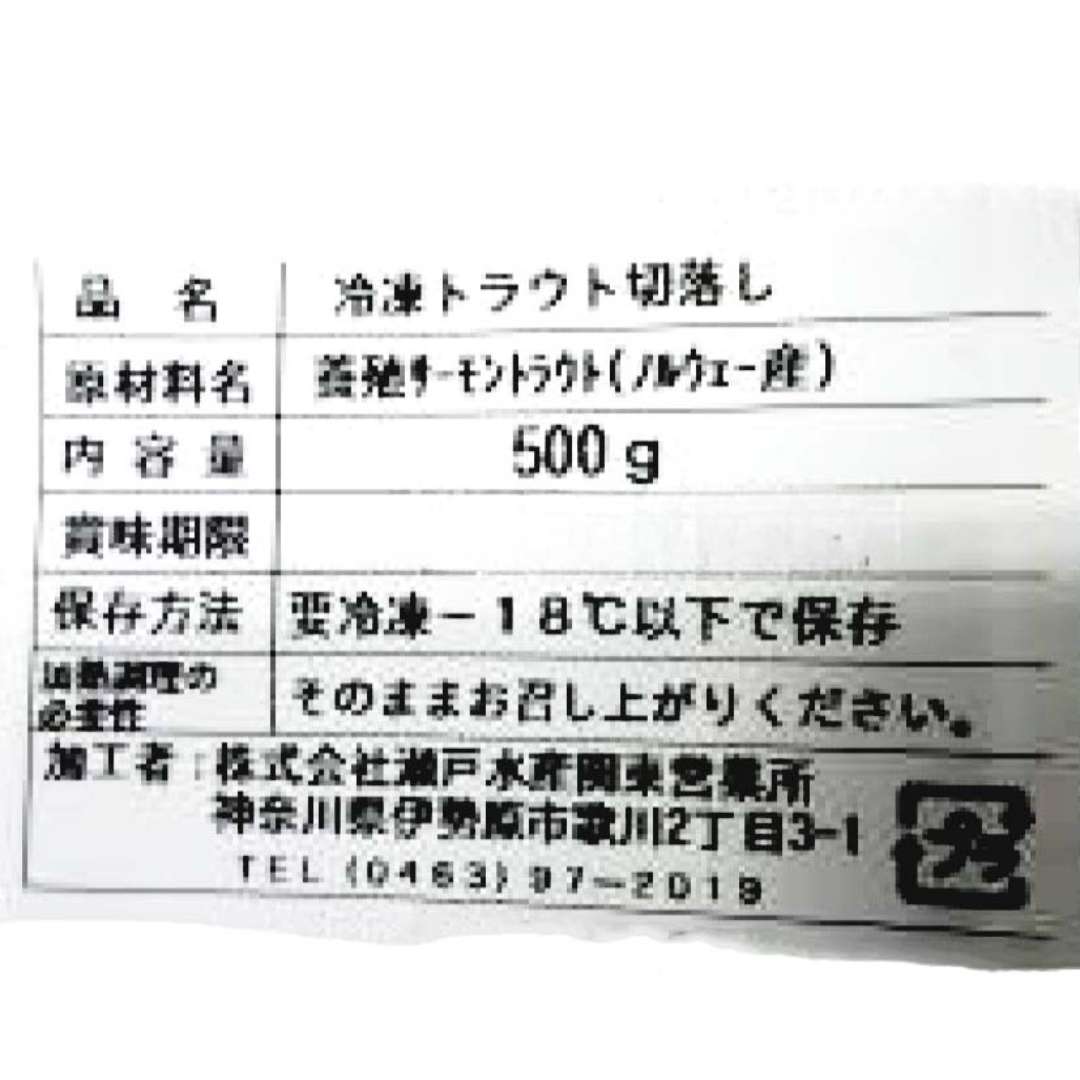 品名 冷凍トラウト切落し
原材料名 養殖ｻｰﾓﾝﾄﾗｳﾄ(ﾉﾙｳｪｰ産)
内容量 500g
賞味期限
保存方法 要冷凍－18℃以下で保存
加熱調理の
必要性 そのままお召し上がりください。
加工者：株式会社瀬戸水産関東営業所
神奈川県伊勢原市歌川2丁目3-1
TEL (0463) 97－2019
プラ